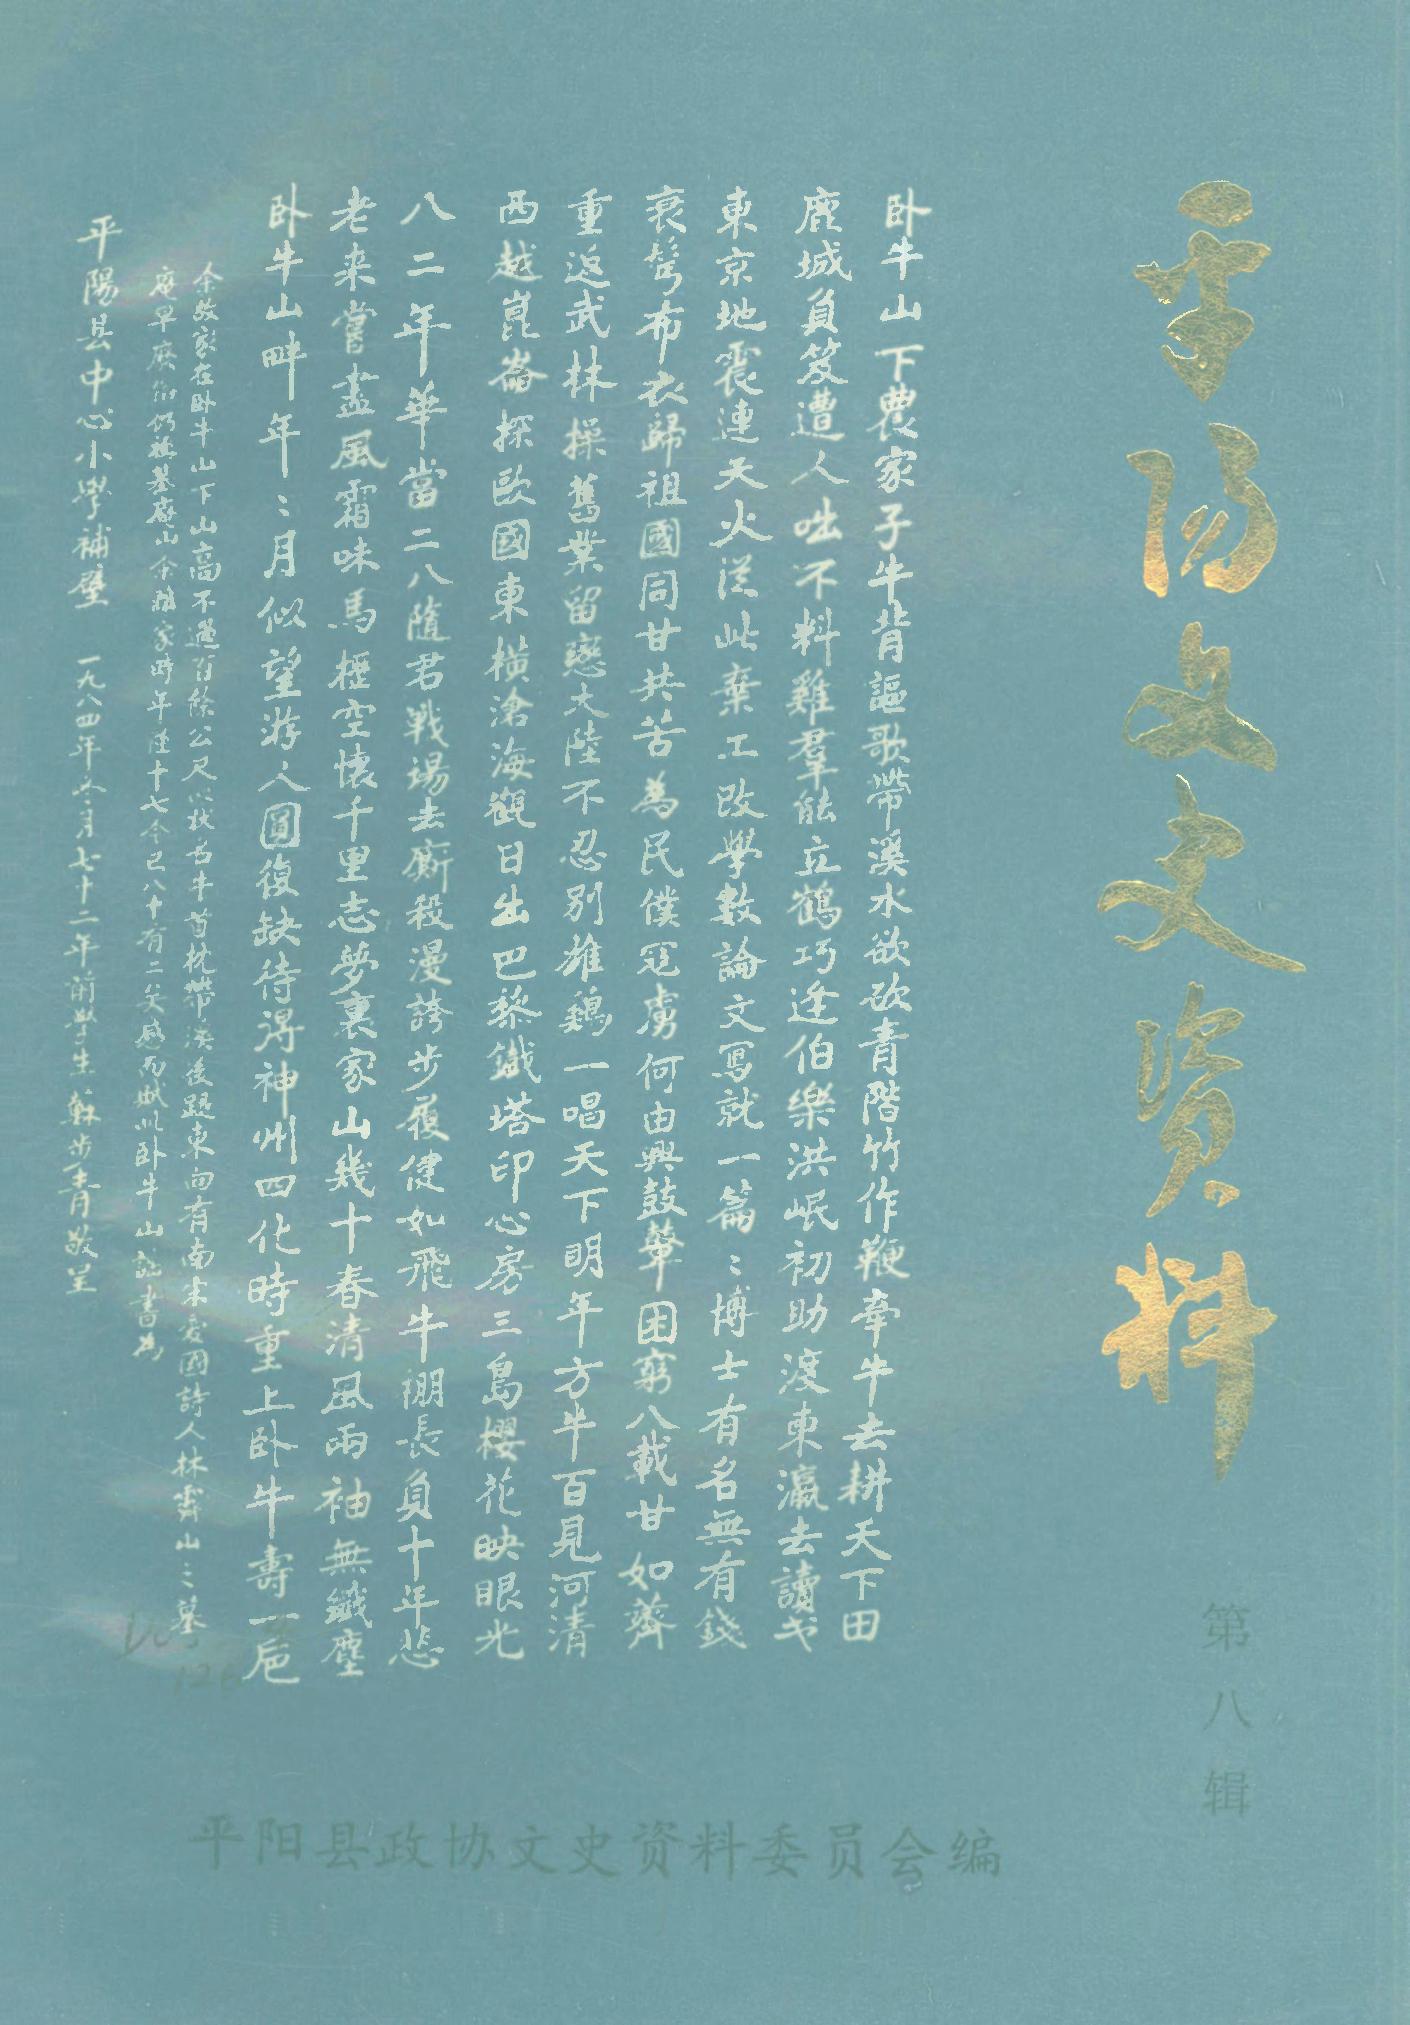 平阳文史资料
第八辑
卧牛山下農家子牛背謳歌帶溪水欲砍青階竹作鞭牽牛去耕天下田
鹿城負笈遭人咄不料雞羣能立鶴巧逢伯樂洪岷初助渡東瀛去讀书
東京地震連天火從此棄工改學數論文寫就一篇〻博士有名無有錢
衰髩布衣歸祖國同甘共苦為民僕寇虜何由興鼓鼙困窮八載甘如薺
重返武林操舊業留戀大陸不忍別雄鷄一唱天下明年方半百見河清
西越崑崙探歐國東橫滄海觀日出巴黎鐵塔印心房三島櫻花映眼光
八二年華當二八隨君戰場去廝殺漫誇步履健如飛牛棚長負十年悲
老来嘗盡風霜味馬櫪空懷千里志夢裏家山幾十春清風兩袖無纖塵
卧牛山畔年〻月似望游人圓復缺待得神州四化時重上卧牛壽一卮
余故家在卧牛山下山高不過百餘公尺以狀名牛首枕帶溪後題東向有南宋愛國詩人林霽山之墓
庵早廢俗仍稱墓庵山余離家時年僅十七今已八十有二矣感而賦此卧牛山謠書為
平陽县中心小學補壁 一九八四年 月七十二年前學生蘇步青敬呈
平阳县政协文史资料委员会编